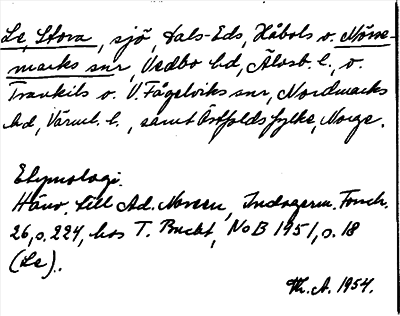 Le, Stora, sjö, Dals-Eds, Håbols o. Nösse-
marks snr, Vedbo hd, Älvsb. l., o.
Trankils o. V. Fågelviks snr, Nordmarks
hd, Värml. l., samt Östfolds fylke, Norge.
Etymologi.
Hänv. till Ad. Noreen, Indogerm. Forsch.
26, s. 224, hos T. Bucht, NoB 1951, s. 18
(Le).
Th. A. 1954.